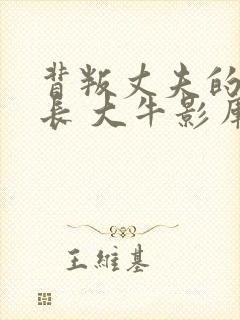 背叛丈夫的
長 大牛影庫
王維基